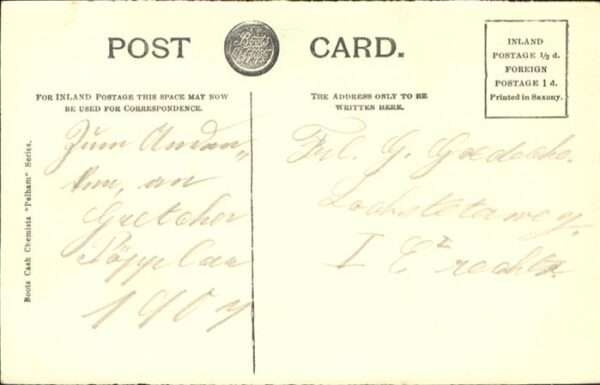 POST CARD.
INLAND
POSTAGE ½ d.
FOREIGN
POSTAGE 1 d.
Printed in Saxony.
FOR INLAND POSTAGE THIS SPACE MAY NOW
BE USED FOR CORRESPONDENCE.
THE ADDRESS ONLY TO BE
WRITTEN HERE.
Boots Cash Chemists "Pelham" Series.
Zum Anden„
ken, an
Gretchen
1907
Frl. G. Goedecke.
I Et rechts.